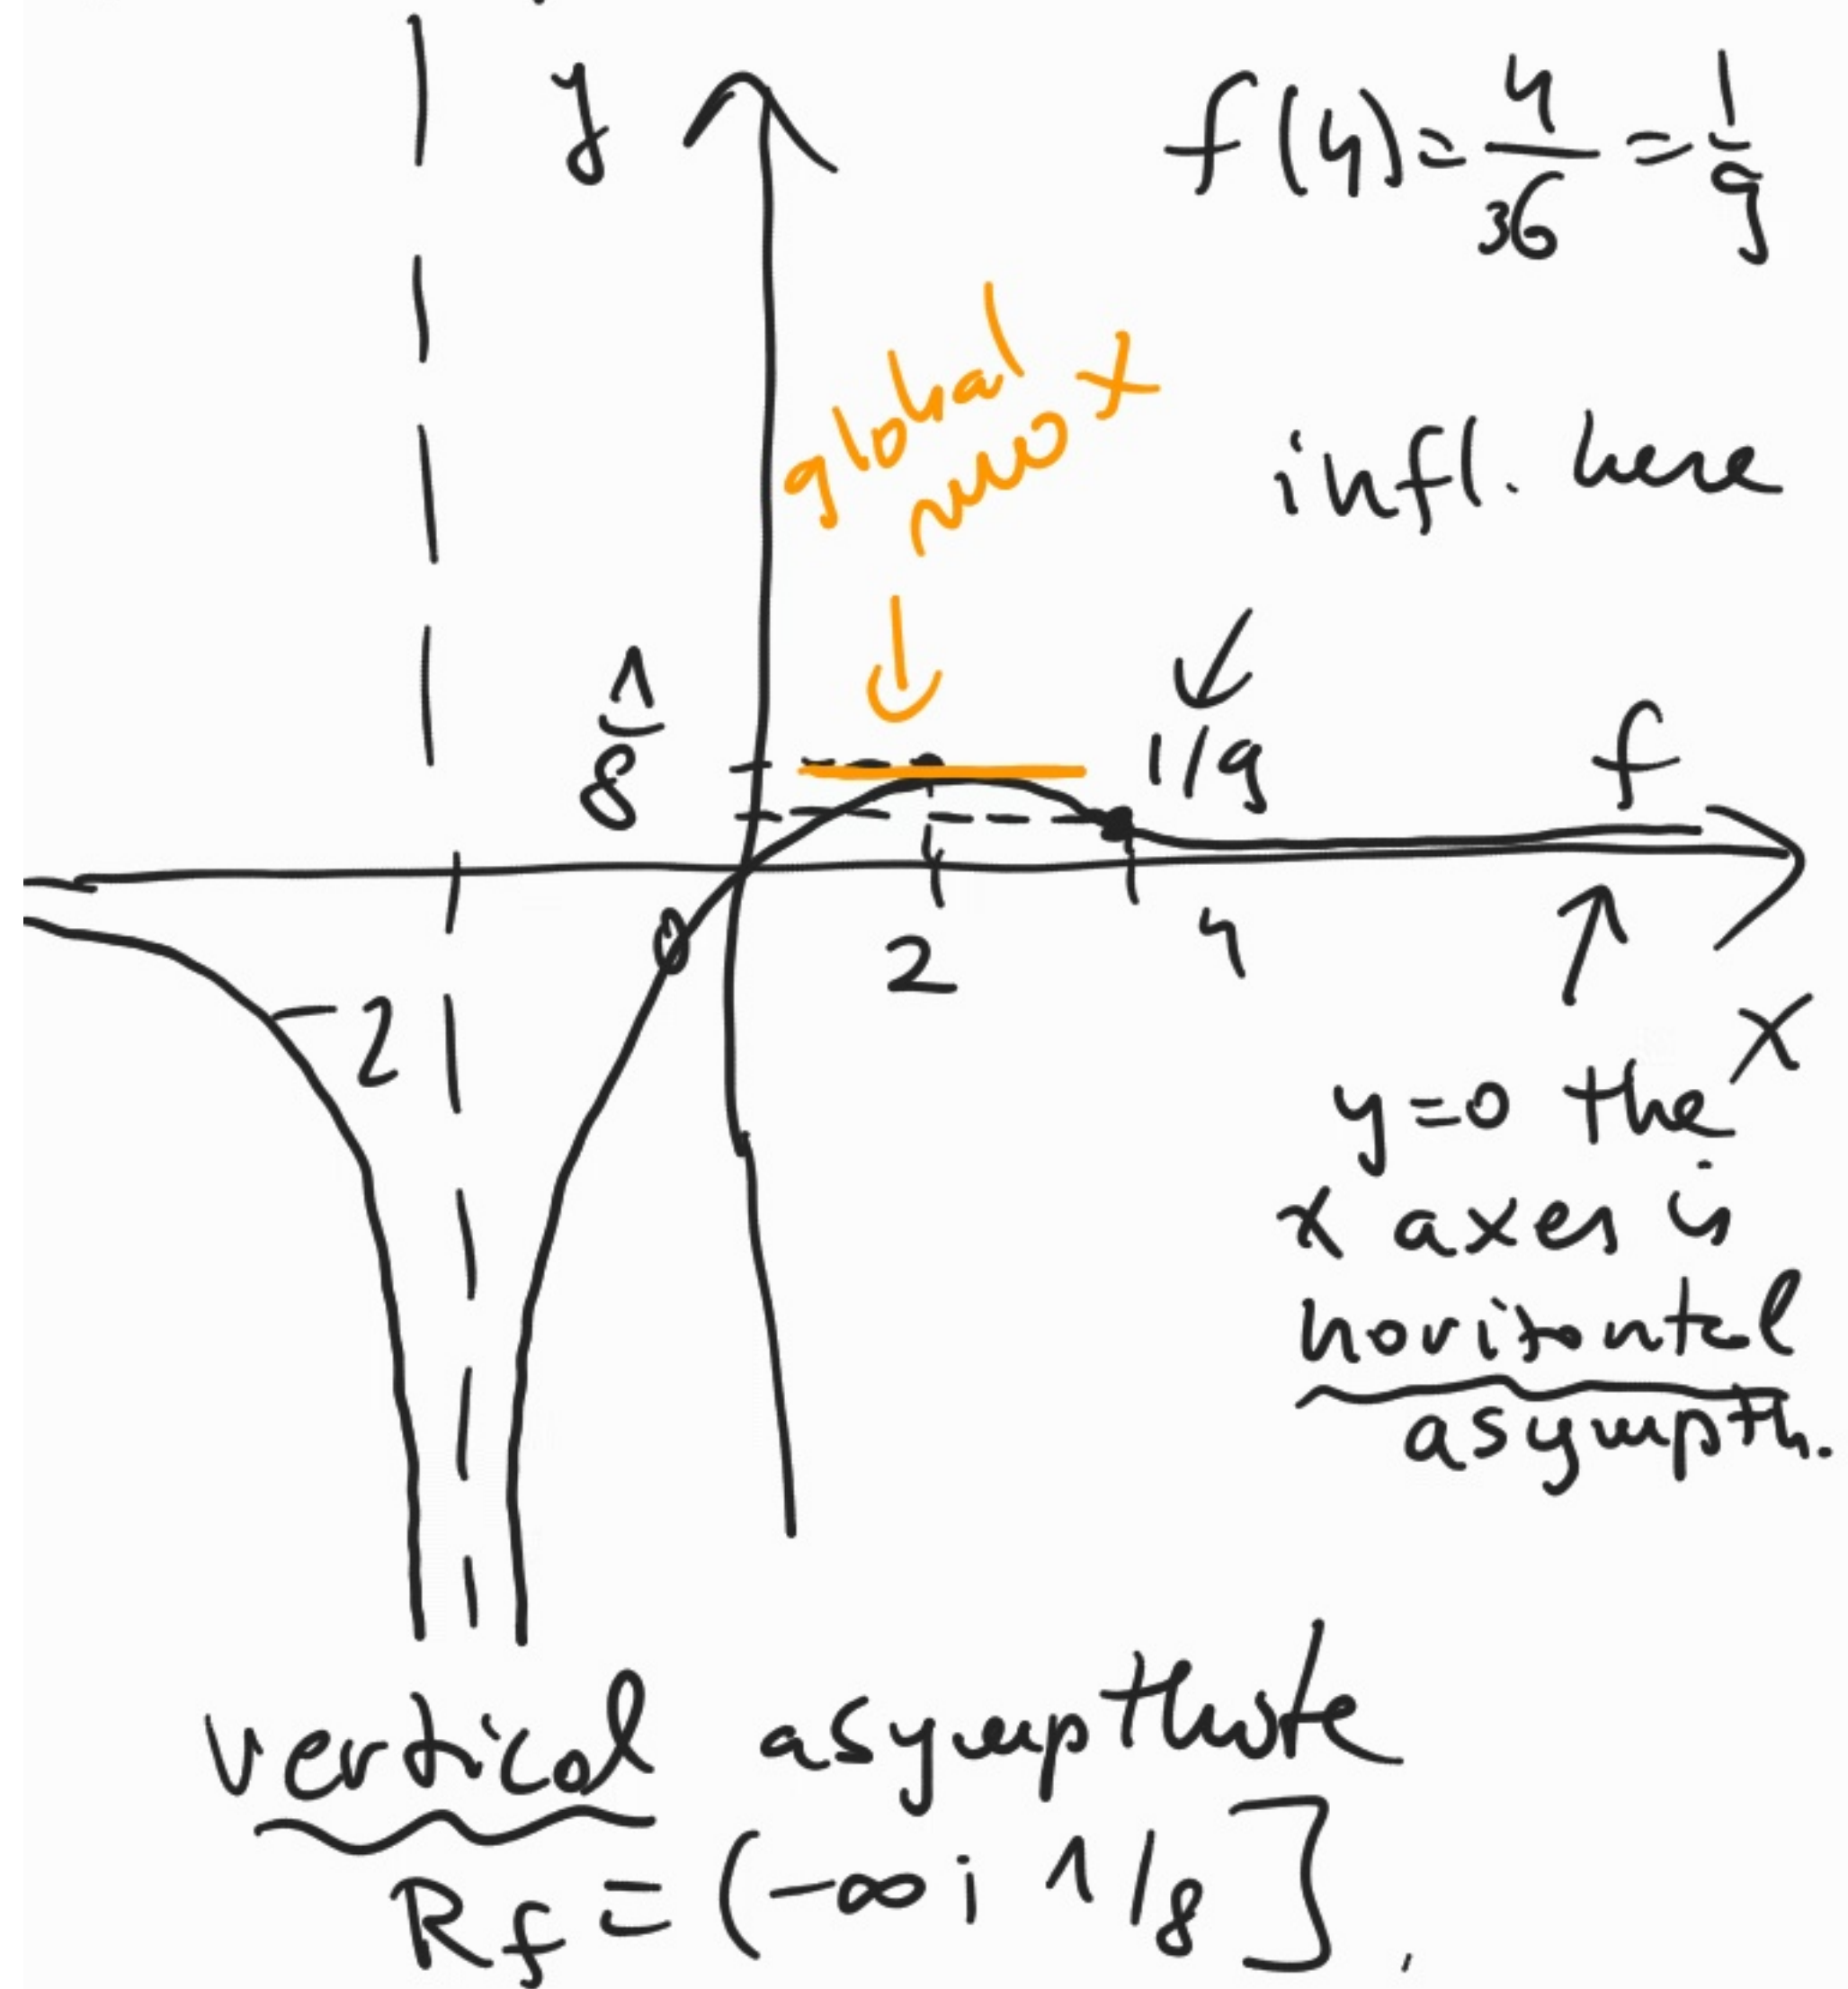 y
f(4) = 4/36 = 1/9
global
max
infl. here
1/8
1/9
f
0
2
4
-2
x
y=0 the
x axes is
horizontal
asympth.
vertical asympthote
Rf = (-∞; 1/8].